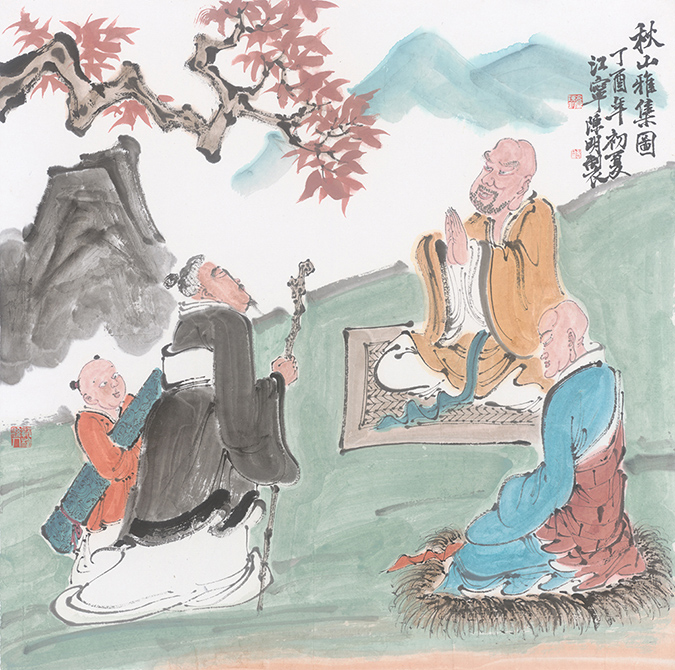 秋山雅集圖
丁酉年初夏
江寧陳明製